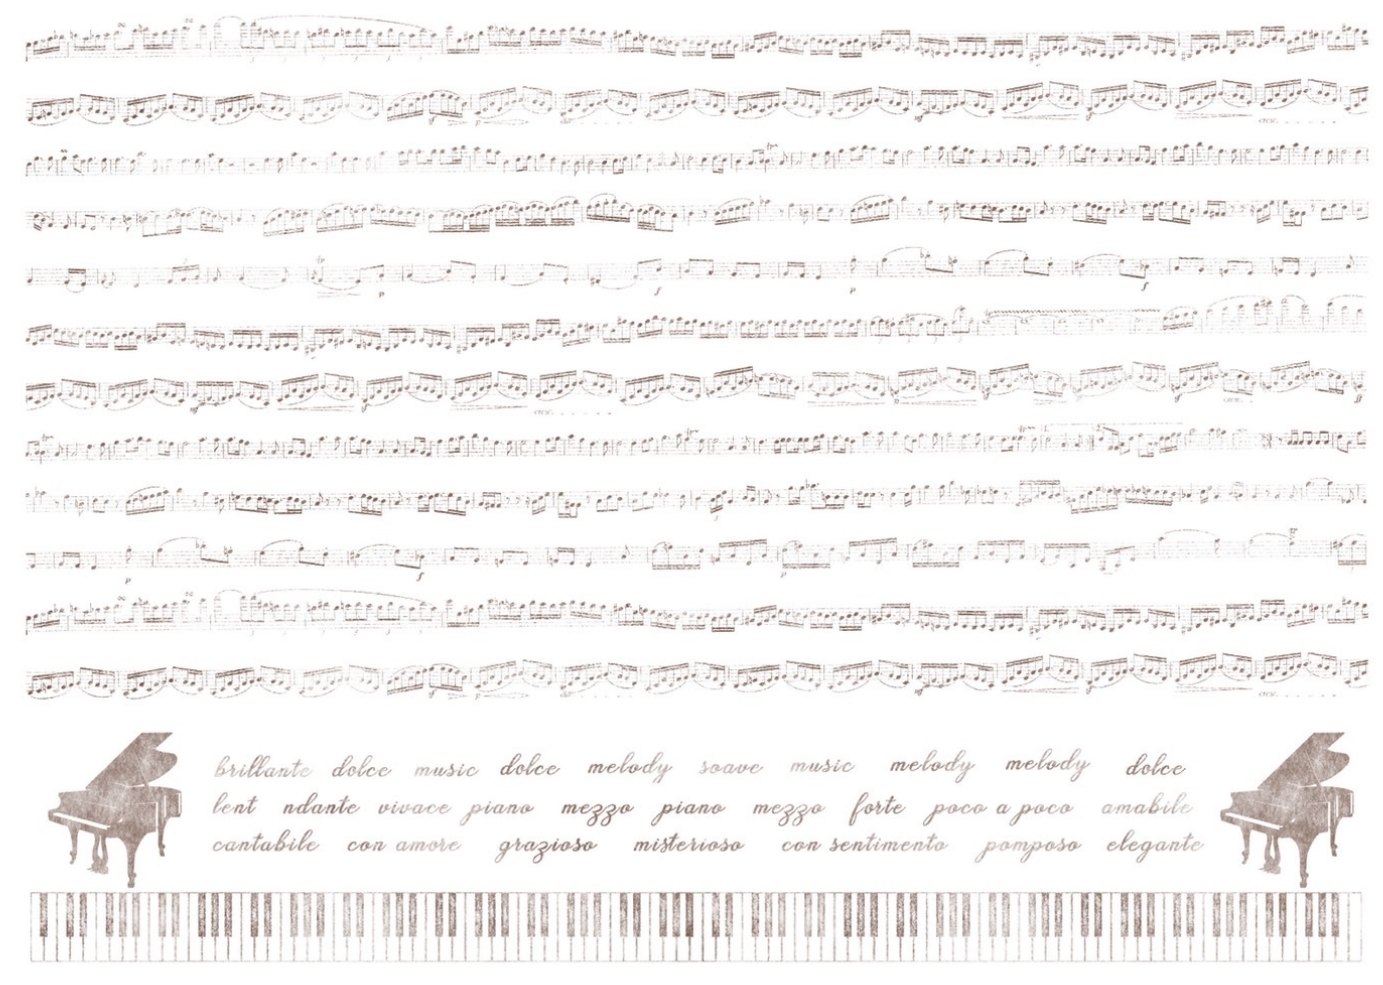 brillante dolce music dolce melody soave music melody melody dolce
lent ndante vivace piano mezzo piano mezzo forte poco a poco amabile
cantabile con amore grazioso misterioso con sentimento pomposo elegante